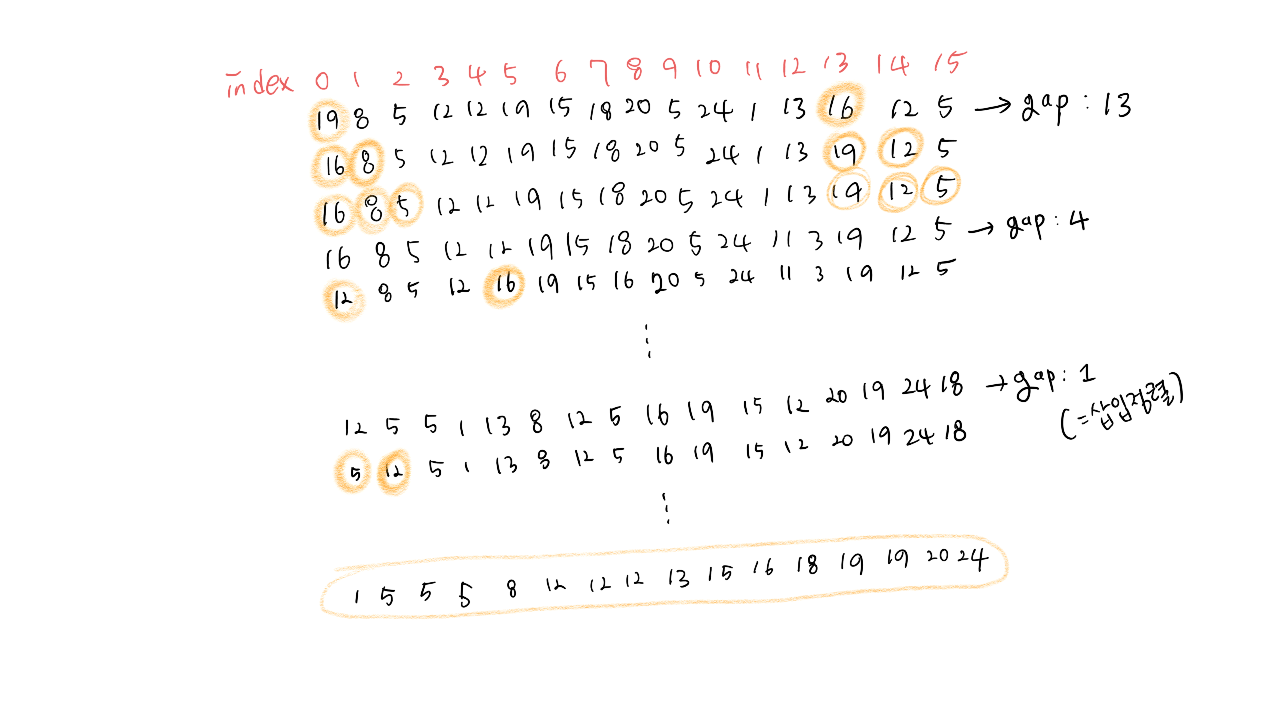 index 0 1 2 3 4 5 6 7 8 9 10 11 12 13 14 15
19 8 5 12 12 19 15 18 20 5 24 1 13 16 12 5 → gap : 13
16 8 5 12 12 19 15 18 20 5 24 1 13 19 12 5
16 8 5 12 12 19 15 18 20 5 24 1 13 19 12 5
16 8 5 12 12 19 15 18 20 5 24 11 3 19 12 5 → gap : 4
12 8 5 12 16 19 15 16 20 5 24 11 3 19 12 5
12 5 5 1 13 8 12 5 16 19 15 12 20 19 24 18 → gap : 1
(=삽입정렬)
5 12 5 1 13 8 12 5 16 19 15 12 20 19 24 18
1 5 5 5 8 12 12 12 13 15 16 18 19 19 20 24